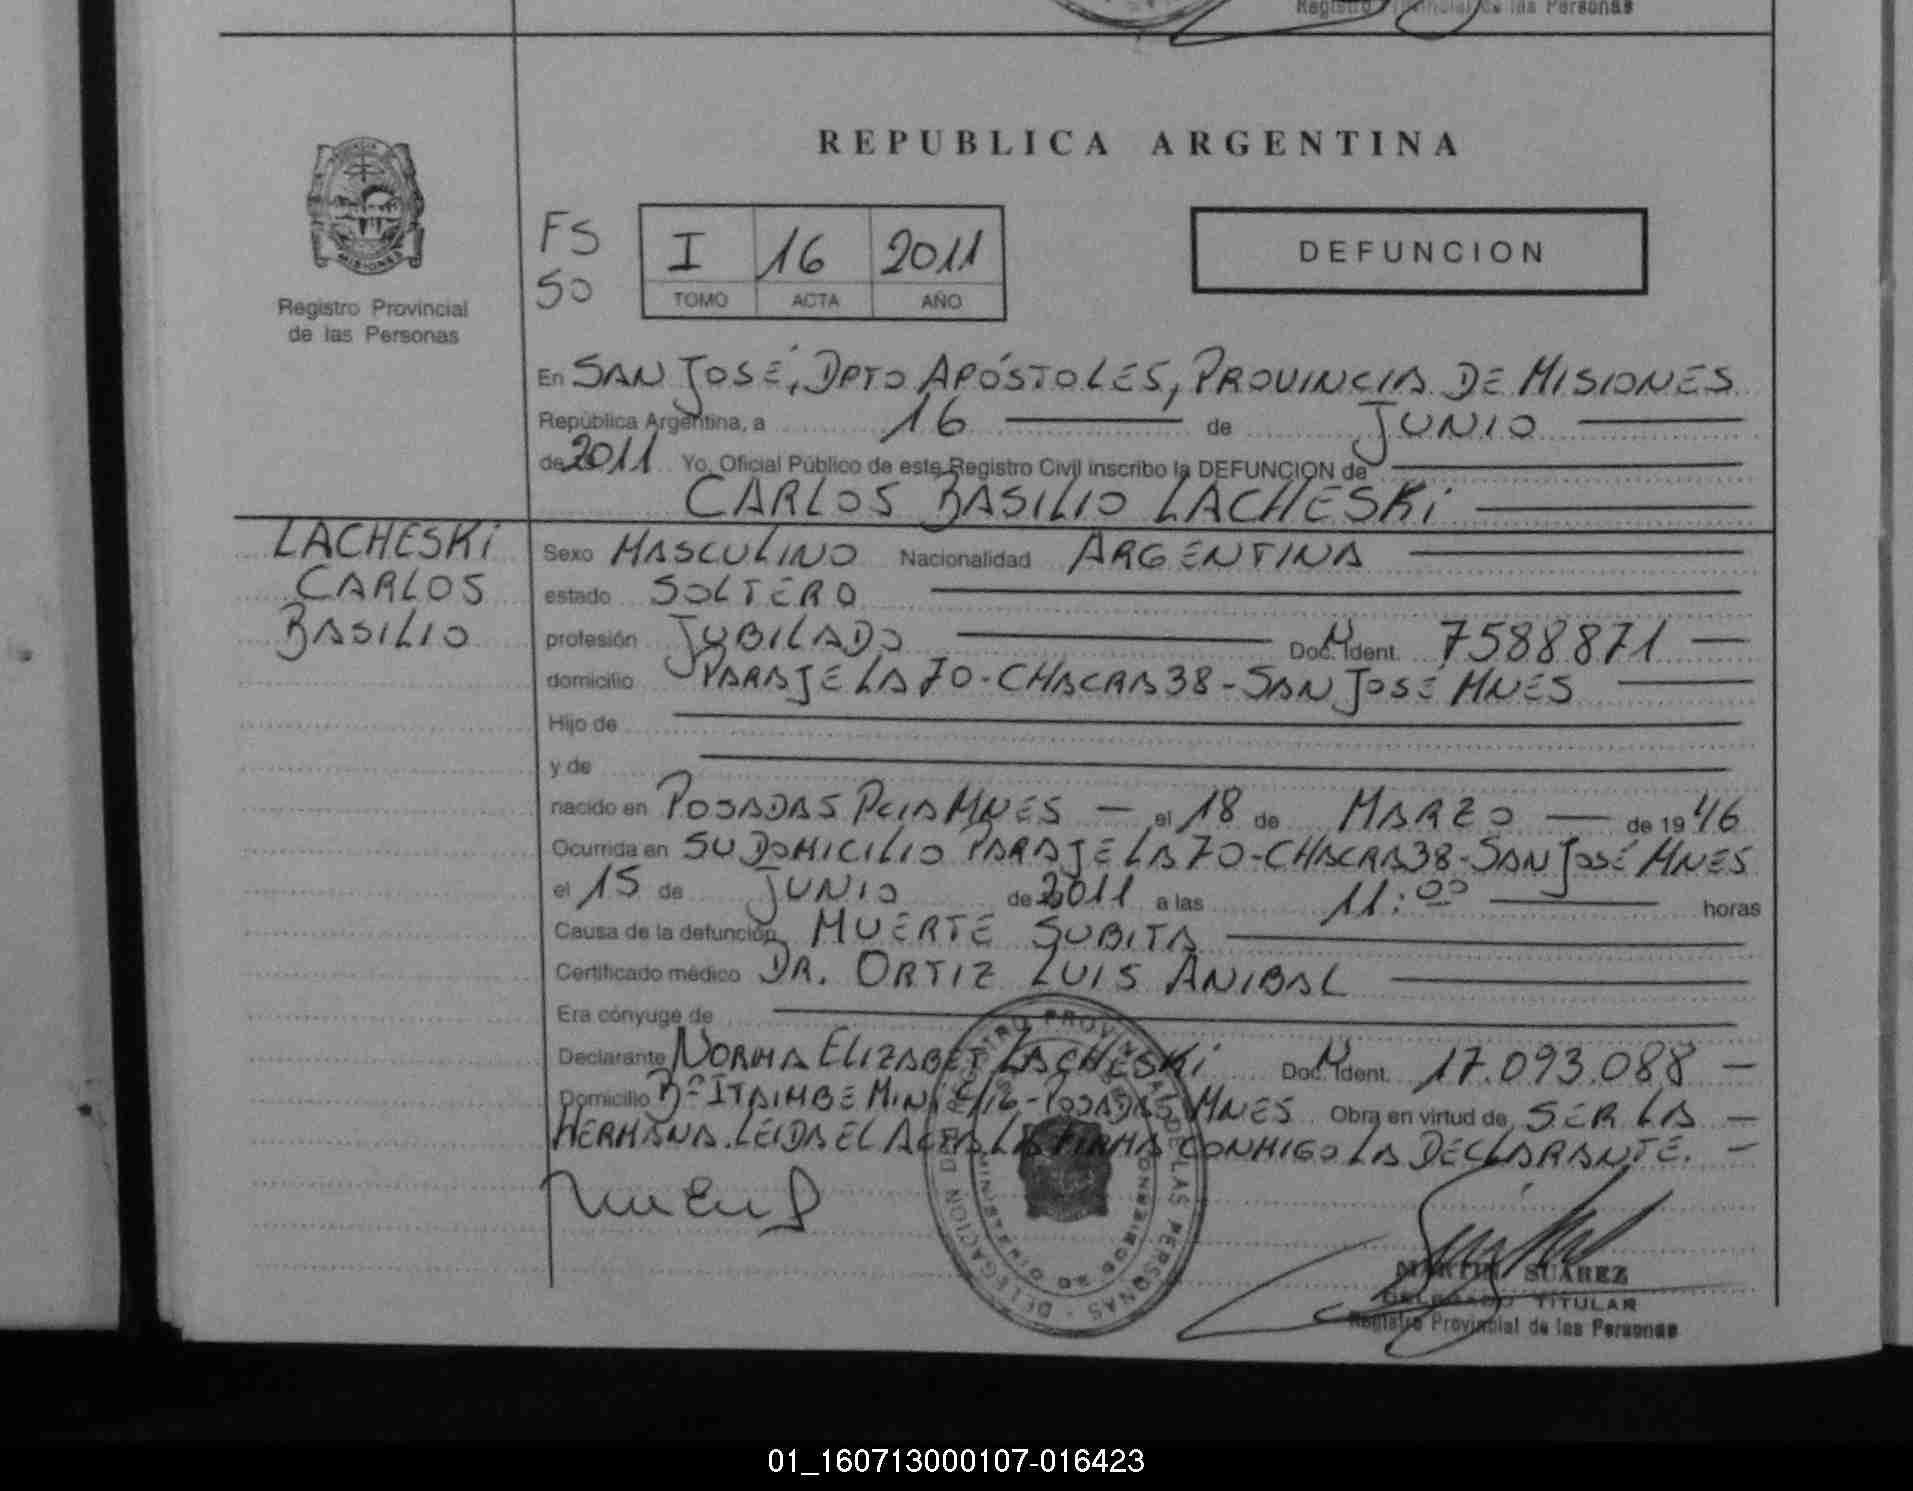 Registro Provincial de las Personas
REPUBLICA ARGENTINA
MISIONES
Registro Provincial
de las Personas
FS
50
I 16 2011
TOMO ACTA AÑO
DEFUNCION
En SAN JOSÉ, DPTO APÓSTOLES, PROVINCIA DE MISIONES
República Argentina, a 16 de JUNIO
de 2011 Yo, Oficial Público de este Registro Civil inscribo la DEFUNCION de
CARLOS BASILIO LACHESKI
LACHESKI
CARLOS
BASILIO
Sexo MASCULINO Nacionalidad ARGENTINA
estado SOLTERO
profesión JUBILADO Doc. Ident. 7588871
domicilio PARAJE LA 70 - CHACRA 38 - SAN JOSÉ MNES
Hijo de
y de
nacido en POSADAS PCIA MNES el 18 de MARZO de 1946
Ocurrida en SU DOMICILIO PARAJE LA 70 - CHACRA 38 - SAN JOSÉ MNES
el 15 de JUNIO de 2011 a las 11:00 horas
Causa de la defunción MUERTE SUBITA
Certificado médico DR. ORTIZ LUIS ANIBAL
Era cónyuge de
Declarante NORMA ELIZABET LACHESKI Doc. Ident. 17.093.088
Domicilio Bº ITAIMBE MINI - POSADAS MNES Obra en virtud de SER LA
HERMANA. LEIDA EL ACTA LA FIRMA CONMIGO LA DECLARANTE.
REGISTRO PROVINCIAL DE LAS PERSONAS - DELEGACION
MINISTERIO DE GOBIERNO
MARTIN SUAREZ
DELEGADO TITULAR
Registro Provincial de las Personas
01_160713000107-016423